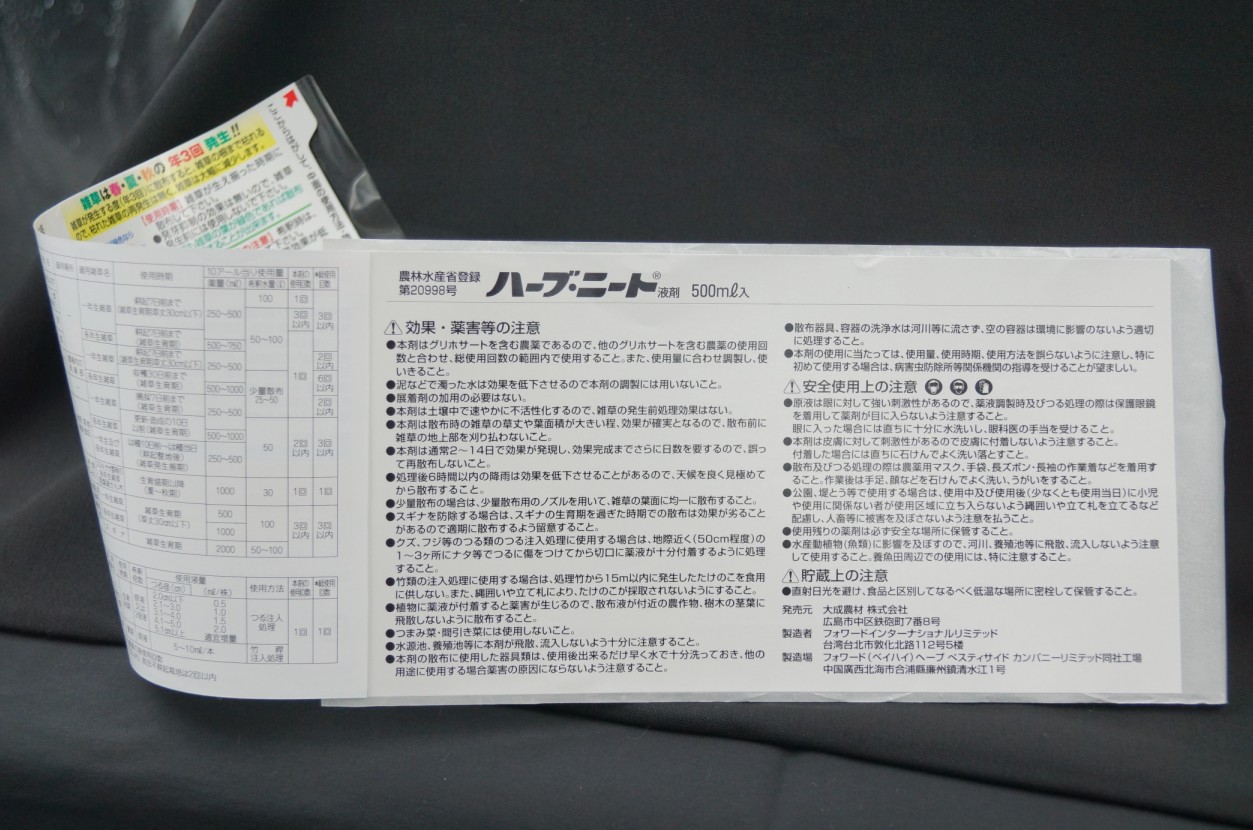 雑草は春・夏・秋の 年3回 発生!!
雑草が発生する度(年3回)に散布すると、雑草の根まで枯れる
ので、枯れた雑草の再発生は無く、雑草は大幅に減少します。
【使用時期】雑草が生え揃った時期に
散布して下さい。
●発芽抑制の効果は無いので、雑草
発生前には使用しないで下さい。
適用雑草名
使用時期
10アール当り使用量
薬量(mℓ)
希釈水量(ℓ)
本剤の使用回数
一年生雑草
耕起7日前まで
(雑草生育期草丈30cm以下)
250〜500
100
1回
3回以内
3回以内
多年生雑草
耕起7日前まで
(雑草生育期)
500〜750
50〜100
一年生雑草
250〜500
1回
2回以内
多年生雑草
収穫30日前まで
(雑草生育期)
500〜1000
少量散布
25〜50
6回以内
250〜500
2回以内
500〜1000
50
2回以内
3回以内
250〜500
生育盛期以降
(夏〜秋期)
1000
30
1回
1回
雑草生育期
(草丈30cm以下)
500
100
3回以内
3回以内
1000
雑草生育期
2000
50〜100
使用薬量
つる径(cm)
(mℓ/株)
使用方法
2.0cm以下
0.5
2.1〜3.0
1.0
3.1〜4.0
1.5
4.1〜5.0
2.0
5.1cm以上
適宜増量
つる注入
処理
1回
1回
5〜10mℓ/本
竹稈
注入処理
農林水産省登録
第20998号
ハーブ・ニート® 液剤 500mℓ入
効果・薬害等の注意
●本剤はグリホサートを含む農薬であるので、他のグリホサートを含む農薬の使用回
数と合わせ、総使用回数の範囲内で使用すること。また、使用量に合わせ調製し、使
いきること。
●泥などで濁った水は効果を低下させるので本剤の調製には用いないこと。
●展着剤の加用の必要はない。
●本剤は土壌中で速やかに不活性化するので、雑草の発生前処理効果はない。
●本剤は散布時の雑草の草丈や葉面積が大きい程、効果が確実となるので、散布前に
雑草の地上部を刈り払わないこと。
●本剤は通常2〜14日で効果が発現し、効果完成までさらに日数を要するので、誤っ
て再散布しないこと。
●処理後6時間以内の降雨は効果を低下させることがあるので、天候を良く見極めて
から散布すること。
●少量散布の場合は、少量散布用のノズルを用いて、雑草の葉面に均一に散布すること。
●スギナを防除する場合は、スギナの生育期を過ぎた時期での散布は効果が劣ること
があるので適期に散布するよう留意すること。
●クズ、フジ等のつる類のつる注入処理に使用する場合は、地際近く(50cm程度)の
1〜3ヶ所にナタ等でつるに傷をつけてから切口に薬液が十分付着するように処理
すること。
●竹類の注入処理に使用する場合は、処理竹から15m以内に発生したたけのこを食用
に供しない。また、縄囲いや立て札により、たけのこが採取されないようにすること。
●植物に薬液が付着すると薬害が生じるので、散布液が付近の農作物、樹木の茎葉に
飛散しないように散布すること。
●つまみ菜・間引き菜には使用しないこと。
●水源池、養殖池等に本剤が飛散、流入しないよう十分に注意すること。
●本剤の散布に使用した器具類は、使用後出来るだけ早く水で十分洗っておき、他の
用途に使用する場合薬害の原因にならないよう注意すること。
●散布器具、容器の洗浄水は河川等に流さず、空の容器は環境に影響のないよう適切
に処理すること。
●本剤の使用に当たっては、使用量、使用時期、使用方法を誤らないように注意し、特に
初めて使用する場合は、病害虫防除所等関係機関の指導を受けることが望ましい。
安全使用上の注意
●原液は眼に対して強い刺激性があるので、薬液調製時及びつる処理の際は保護眼鏡
を着用して薬剤が目に入らないよう注意すること。
眼に入った場合には直ちに十分に水洗いし、眼科医の手当を受けること。
●本剤は皮膚に対して刺激性があるので皮膚に付着しないよう注意すること。
付着した場合には直ちに石けんでよく洗い落とすこと。
●散布及びつる処理の際は農薬用マスク、手袋、長ズボン・長袖の作業着などを着用す
ること。作業後は手足、顔などを石けんでよく洗い、うがいをすること。
●公園、堤とう等で使用する場合は、使用中及び使用後(少なくとも使用当日)に小児
や使用に関係ない者が使用区域に立ち入らないよう縄囲いや立て札を立てるなど
配慮し、人畜等に被害を及ぼさないよう注意を払うこと。
●使用残りの薬剤は必ず安全な場所に保管すること。
●水産動植物(魚類)に影響を及ぼすので、河川、養殖池等に飛散、流入しないよう注意
して使用すること。養魚田周辺での使用には、特に注意すること。
貯蔵上の注意
●直射日光を避け、食品と区別してなるべく低温な場所に密栓して保管すること。
発売元 大成農材 株式会社
広島市中区鉄砲町7番8号
製造者 フォワードインターナショナルリミテッド
台湾台北市敦化北路112号5楼
製造場 フォワード(ベイハイ)ヘープ ペスティサイド カンパニーリミテッド同社工場
中国廣西北海市合浦縣廉州鎮清水江1号